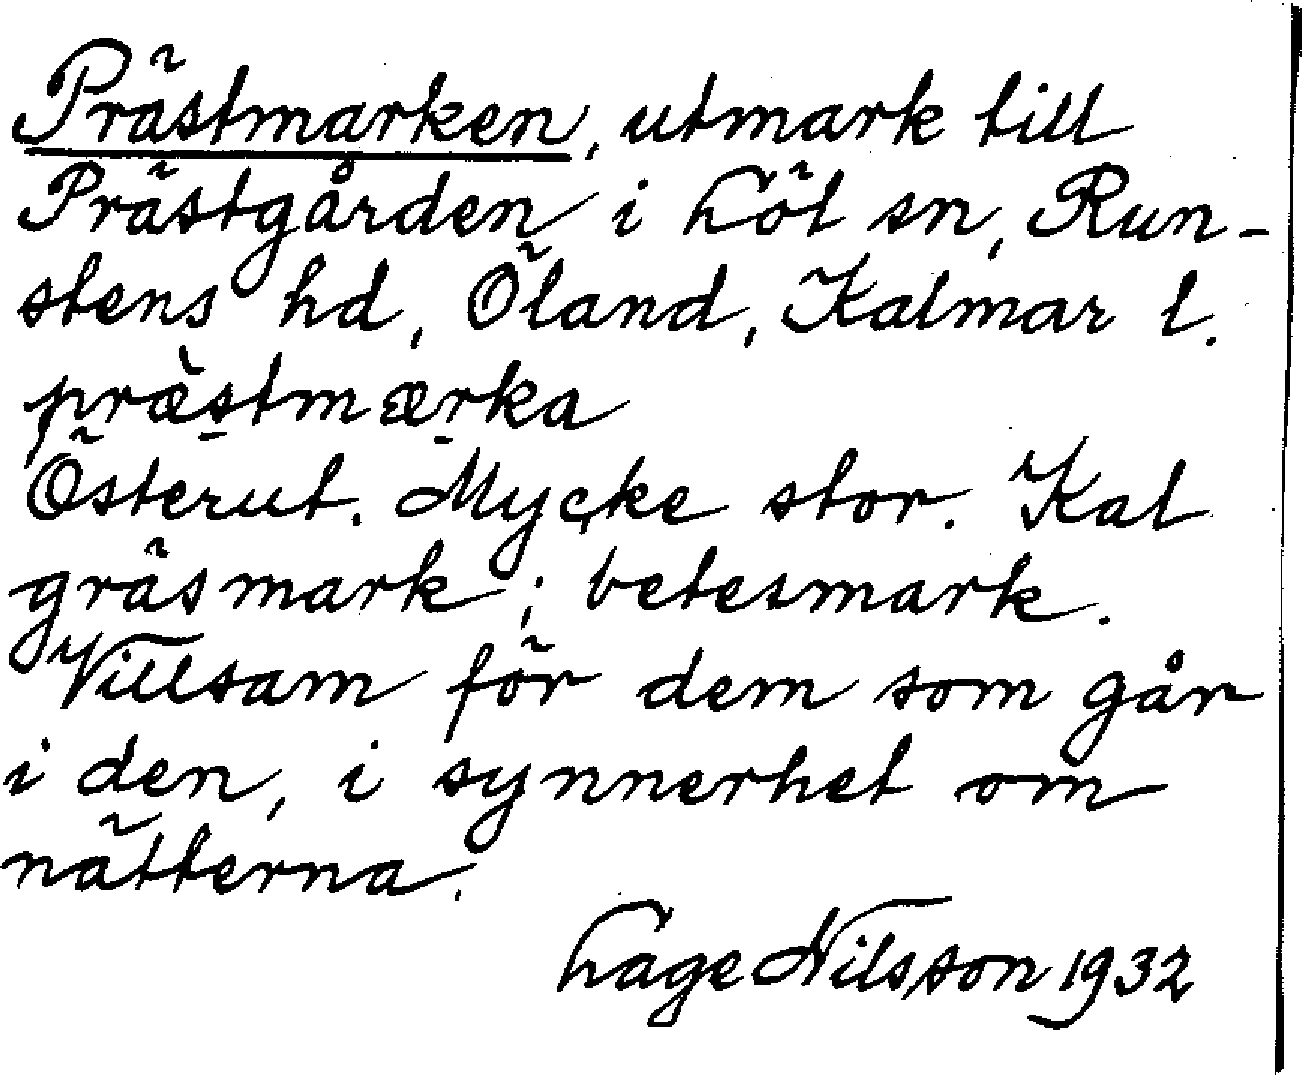 Prästmarken, utmark till
Prästgården i Löt sn, Run-
stens hd, Öland, Kalmar l.
præ̀s̱tmær̠ka
Österut. Mycke stor. Kal
gräsmark; betesmark.
Villsam för dem som går
i den, i synnerhet om
nätterna.
Lage Nilsson 1932